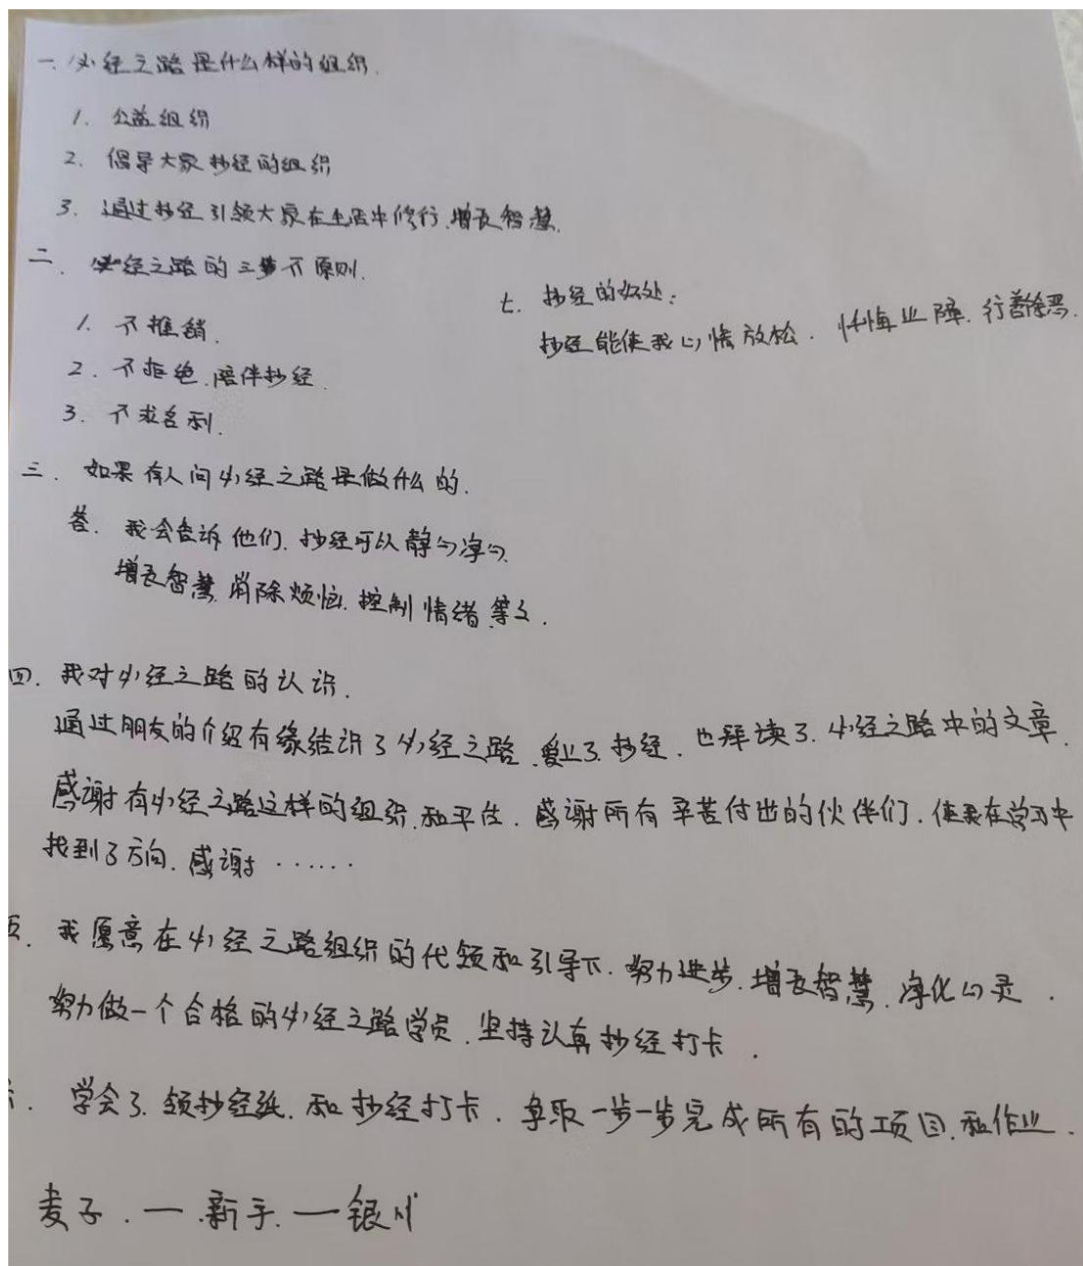 一. 必经之路是什么样的组织.
1. 公益组织
2. 倡导大家抄经的组织
3. 通过抄经引领大家在生活中修行.增长智慧.
二. 必经之路的三不原则.
1. 不推销.
2. 不拒绝.陪伴抄经.
3. 不求名利.
七. 抄经的好处:
抄经能使我心情放松. 忏悔业障. 行善除恶.
三. 如果有人问必经之路是做什么的.
答. 我会告诉他们. 抄经可以静心净心.
增长智慧. 消除烦恼. 控制情绪.等等.
四. 我对必经之路的认识.
通过朋友的介绍有缘结识了必经之路.爱上了.抄经. 也拜读了. 必经之路中的文章.
感谢有必经之路这样的组织.和平台. 感谢所有辛苦付出的伙伴们. 使我在学习中
找到了方向. 感谢 ······
五. 我愿意在必经之路组织的代领和引导下. 努力进步. 增长智慧. 净化心灵.
努力做一个合格的必经之路学员. 坚持认真抄经打卡.
. 学会了. 领抄经纸. 和抄经打卡. 争取一步一步完成所有的项目.和作业.
麦子. 一 .新手. 一 银川